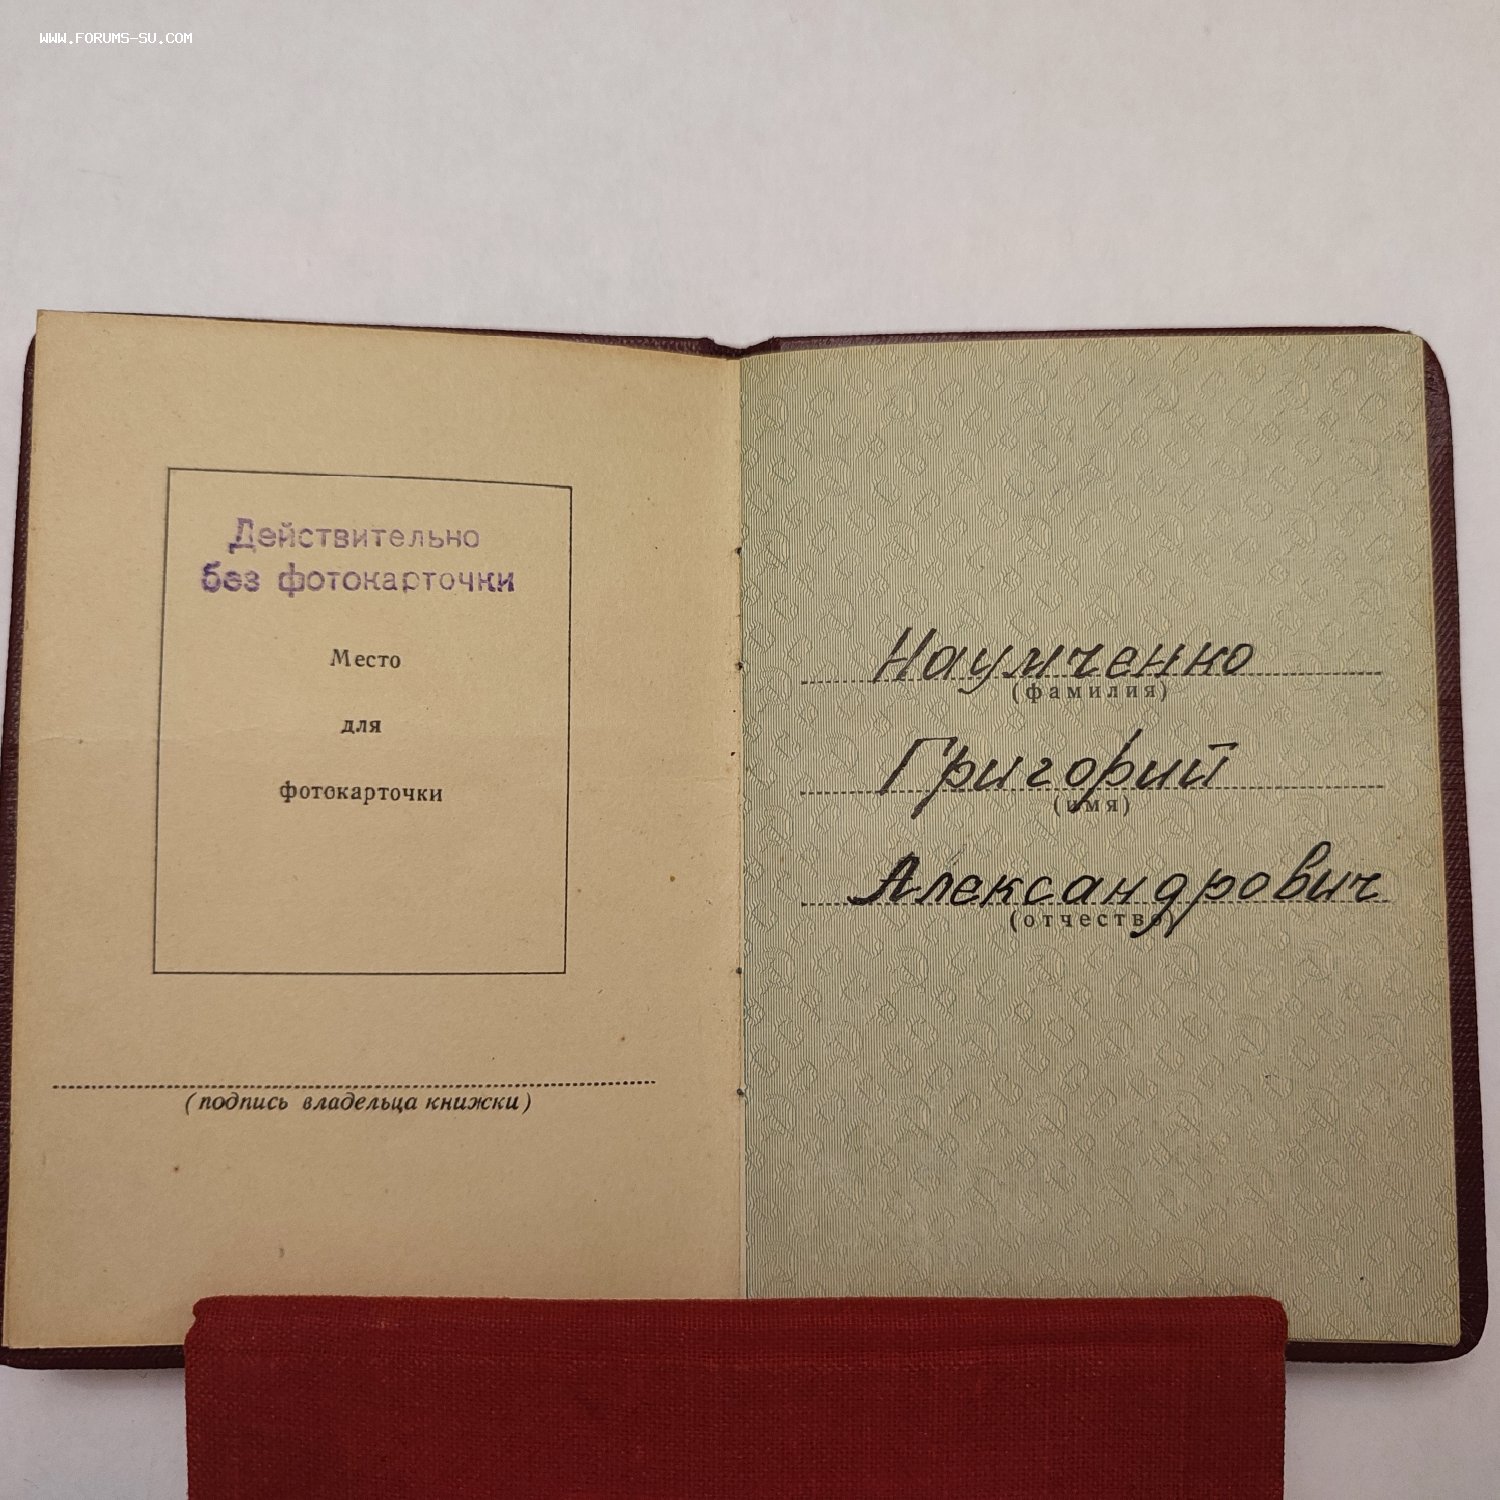 WWW.FORUMS-SU.COM
Действительно
без фотокарточки
Место
для
фотокарточки
(подпись владельца книжки)
Наумченко
(фамилия)
Григорий
(имя)
Александрович
(отчество)